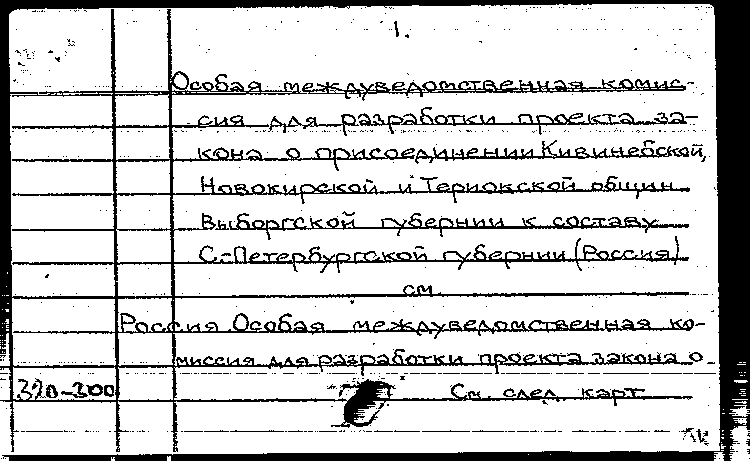 1.
Особая междуведомственная комис-
сия для разработки проекта за-
кона о присоединении Кивинебской,
Новокирской и Териокской общин
Выборгской губернии к составу
С.-Петербургской губернии (Россия)
см.
Россия. Особая междуведомственная ко-
миссия для разработки проекта закона о
320-300 См. след. карт.